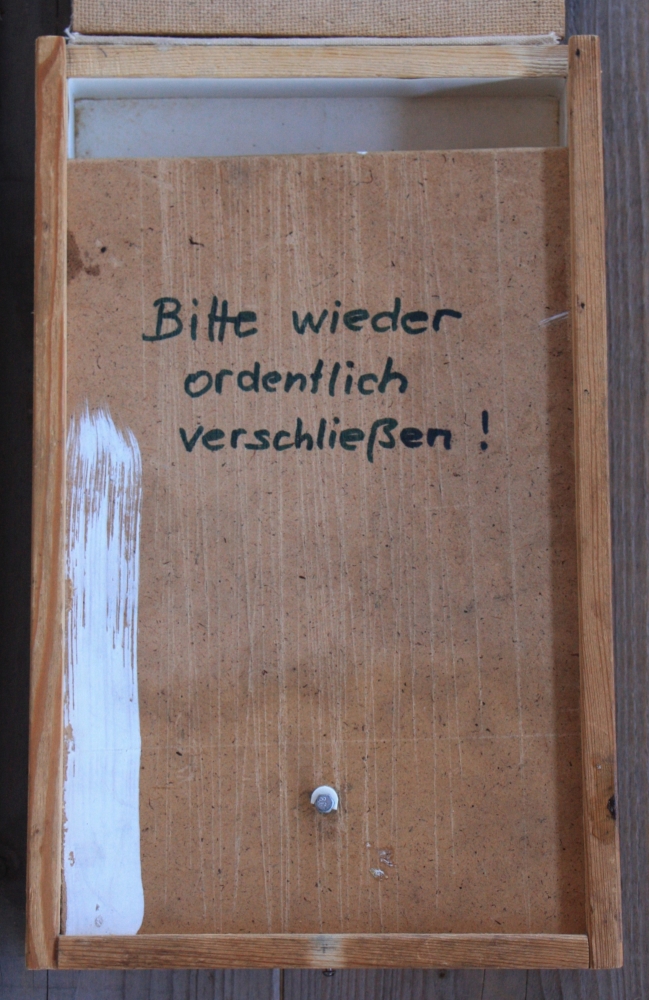 Bitte wieder
ordentlich
verschließen !